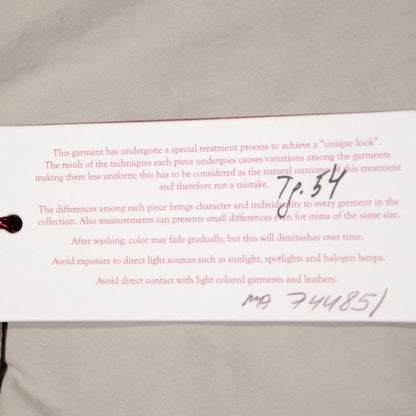 This garment has undergone a special treatment process to achieve a "unique look".
The result of the techniques each piece undergoes causes variations among the garments
making them less uniform; this has to be considered as the natural outcome of this treatment
and therefore not a mistake.
Tg. 54
The differences among each piece brings character and individuality to every garment in the
collection. Also measurements can presents small differences even for items of the same size.
After washing, color may fade gradually, but this will diminishes over time.
Avoid exposure to direct light sources such as sunlight, spotlights and halogen lamps.
Avoid direct contact with light colored garments and leathers.
MA 744851